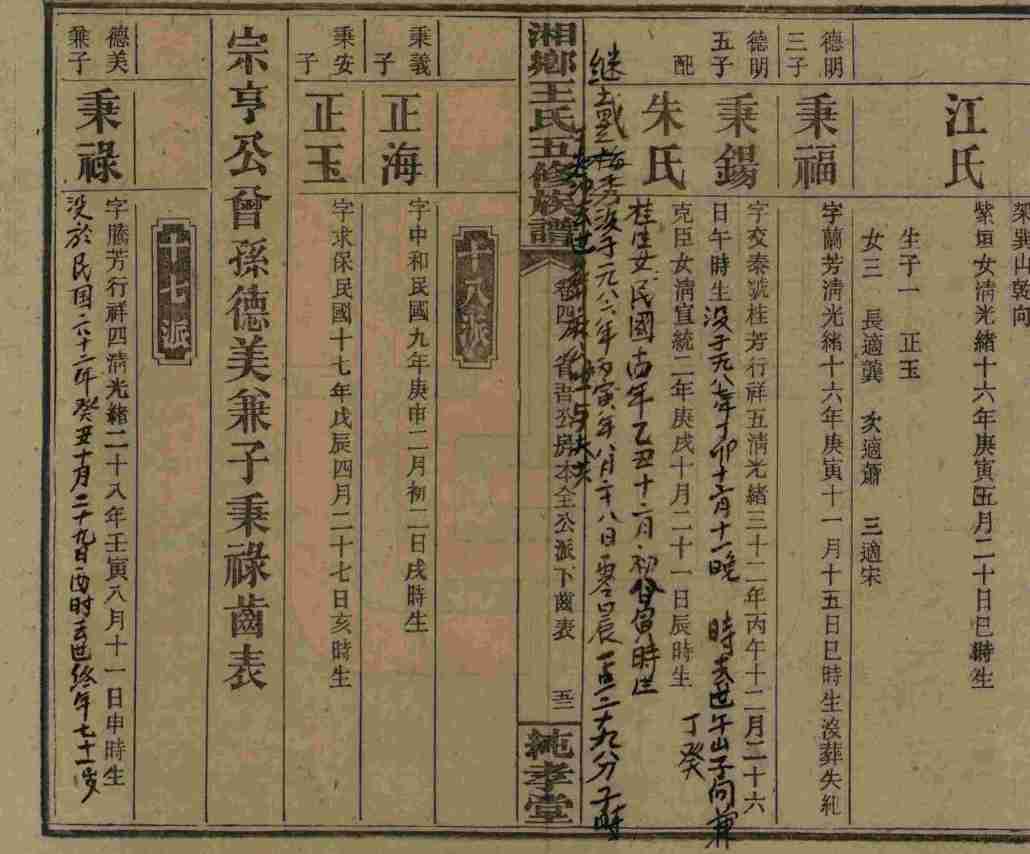 架巽山乾向
江氏
紫垣女清光緒十六年庚寅五月二十日巳時生
生子一 正玉
女三 長適龔 次適蕭 三適宋
德明
三子
秉福
字蘭芳清光緒十六年庚寅十一月十五日巳時生沒葬失紀
德明
五子
秉錫
字交泰號桂芳行祥五清光緒三十二年丙午十二月二十六
日午時生 没于一九八七年丁卯十二月十一晚 時去世午山子向兼
丁癸
配
朱氏
克臣女清宣統二年庚戌十月二十一日辰時生
桂生女民國十四年乙丑十二月初
继 戴梅秀没于一九八六年丙寅年八月二十八日零 二十九分子時
湘鄉王氏五修族譜
卷四 公房本全公派下齒表
五二
純孝堂
十八派
秉義
子
正海
字中和民國九年庚申二月初二日戌時生
秉安
子
正玉
字求保民國十七年戊辰四月二十七日亥時生
宗亨公曾孫德美兼子秉祿齒表
十七派
德美
兼子
秉祿
字騰芳行祥四清光緒二十八年壬寅八月十一日申時生
没於民国六十二年癸丑十月二十九日酉时去世終年七十二岁